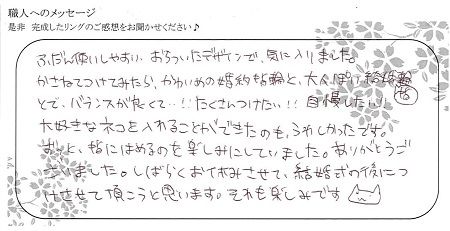 職人へのメッセージ
是非 完成したリングのご感想をお聞かせください♪
ふだん使いしやすい、おちついたデザインで、気に入りました。
かさねてつけてみたら、かわいめの婚約指輪と、大人っぽい結婚指輪
とで、バランスが良くて‥!! たくさんつけたい!! 自慢したい!!
大好きなネコを入れることができたのも、うれしかったです。
ずっと、指にはめるのを楽しみにしていました。ありがとうご
ざいました。しばらくお休みさせて、結婚式の後につ
けさせて頂こうと思います。それも楽しみです